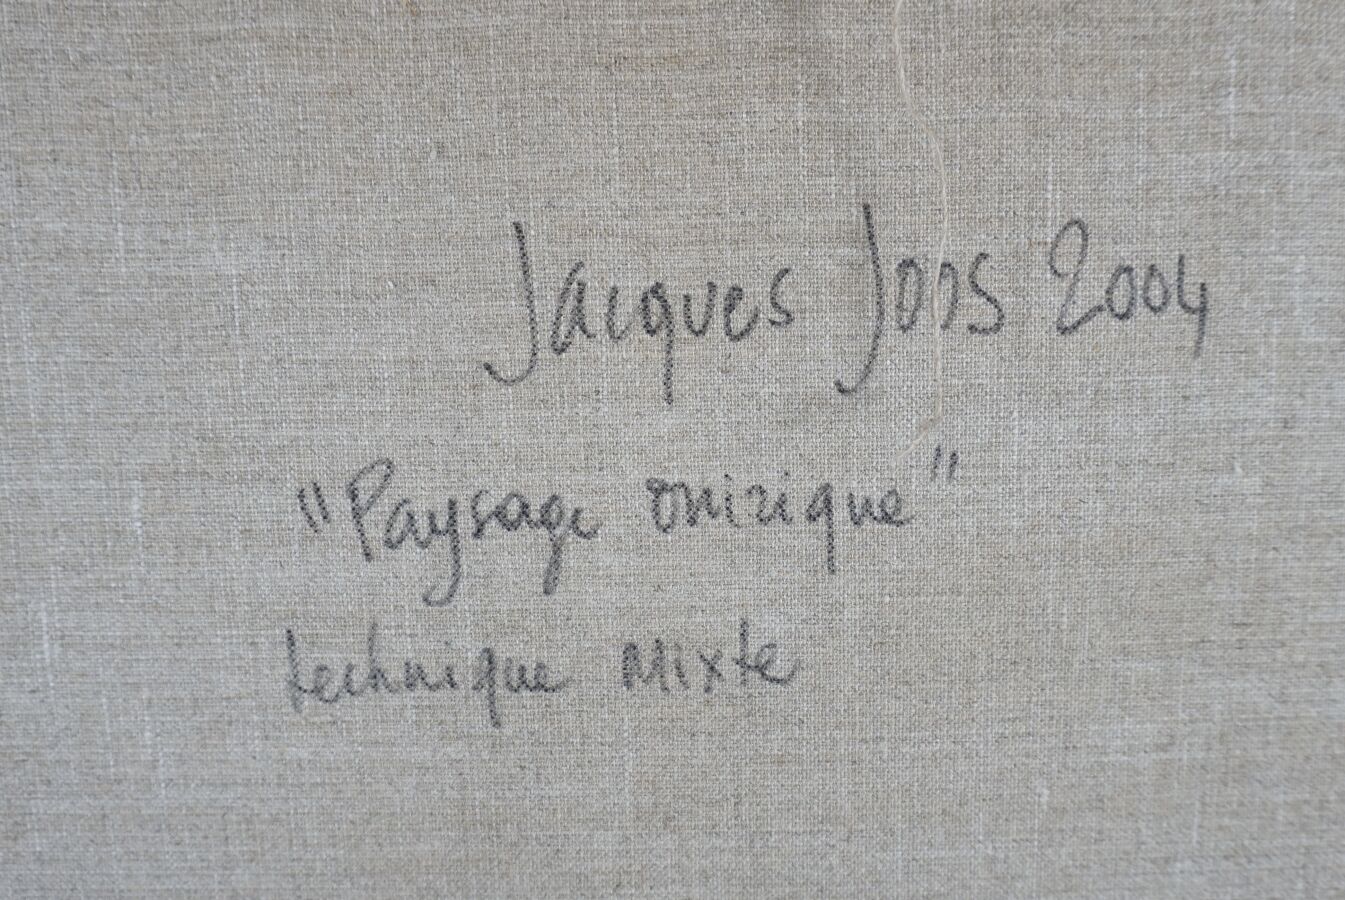 Jacques Joos 2004
"Paysage onirique"
technique mixte